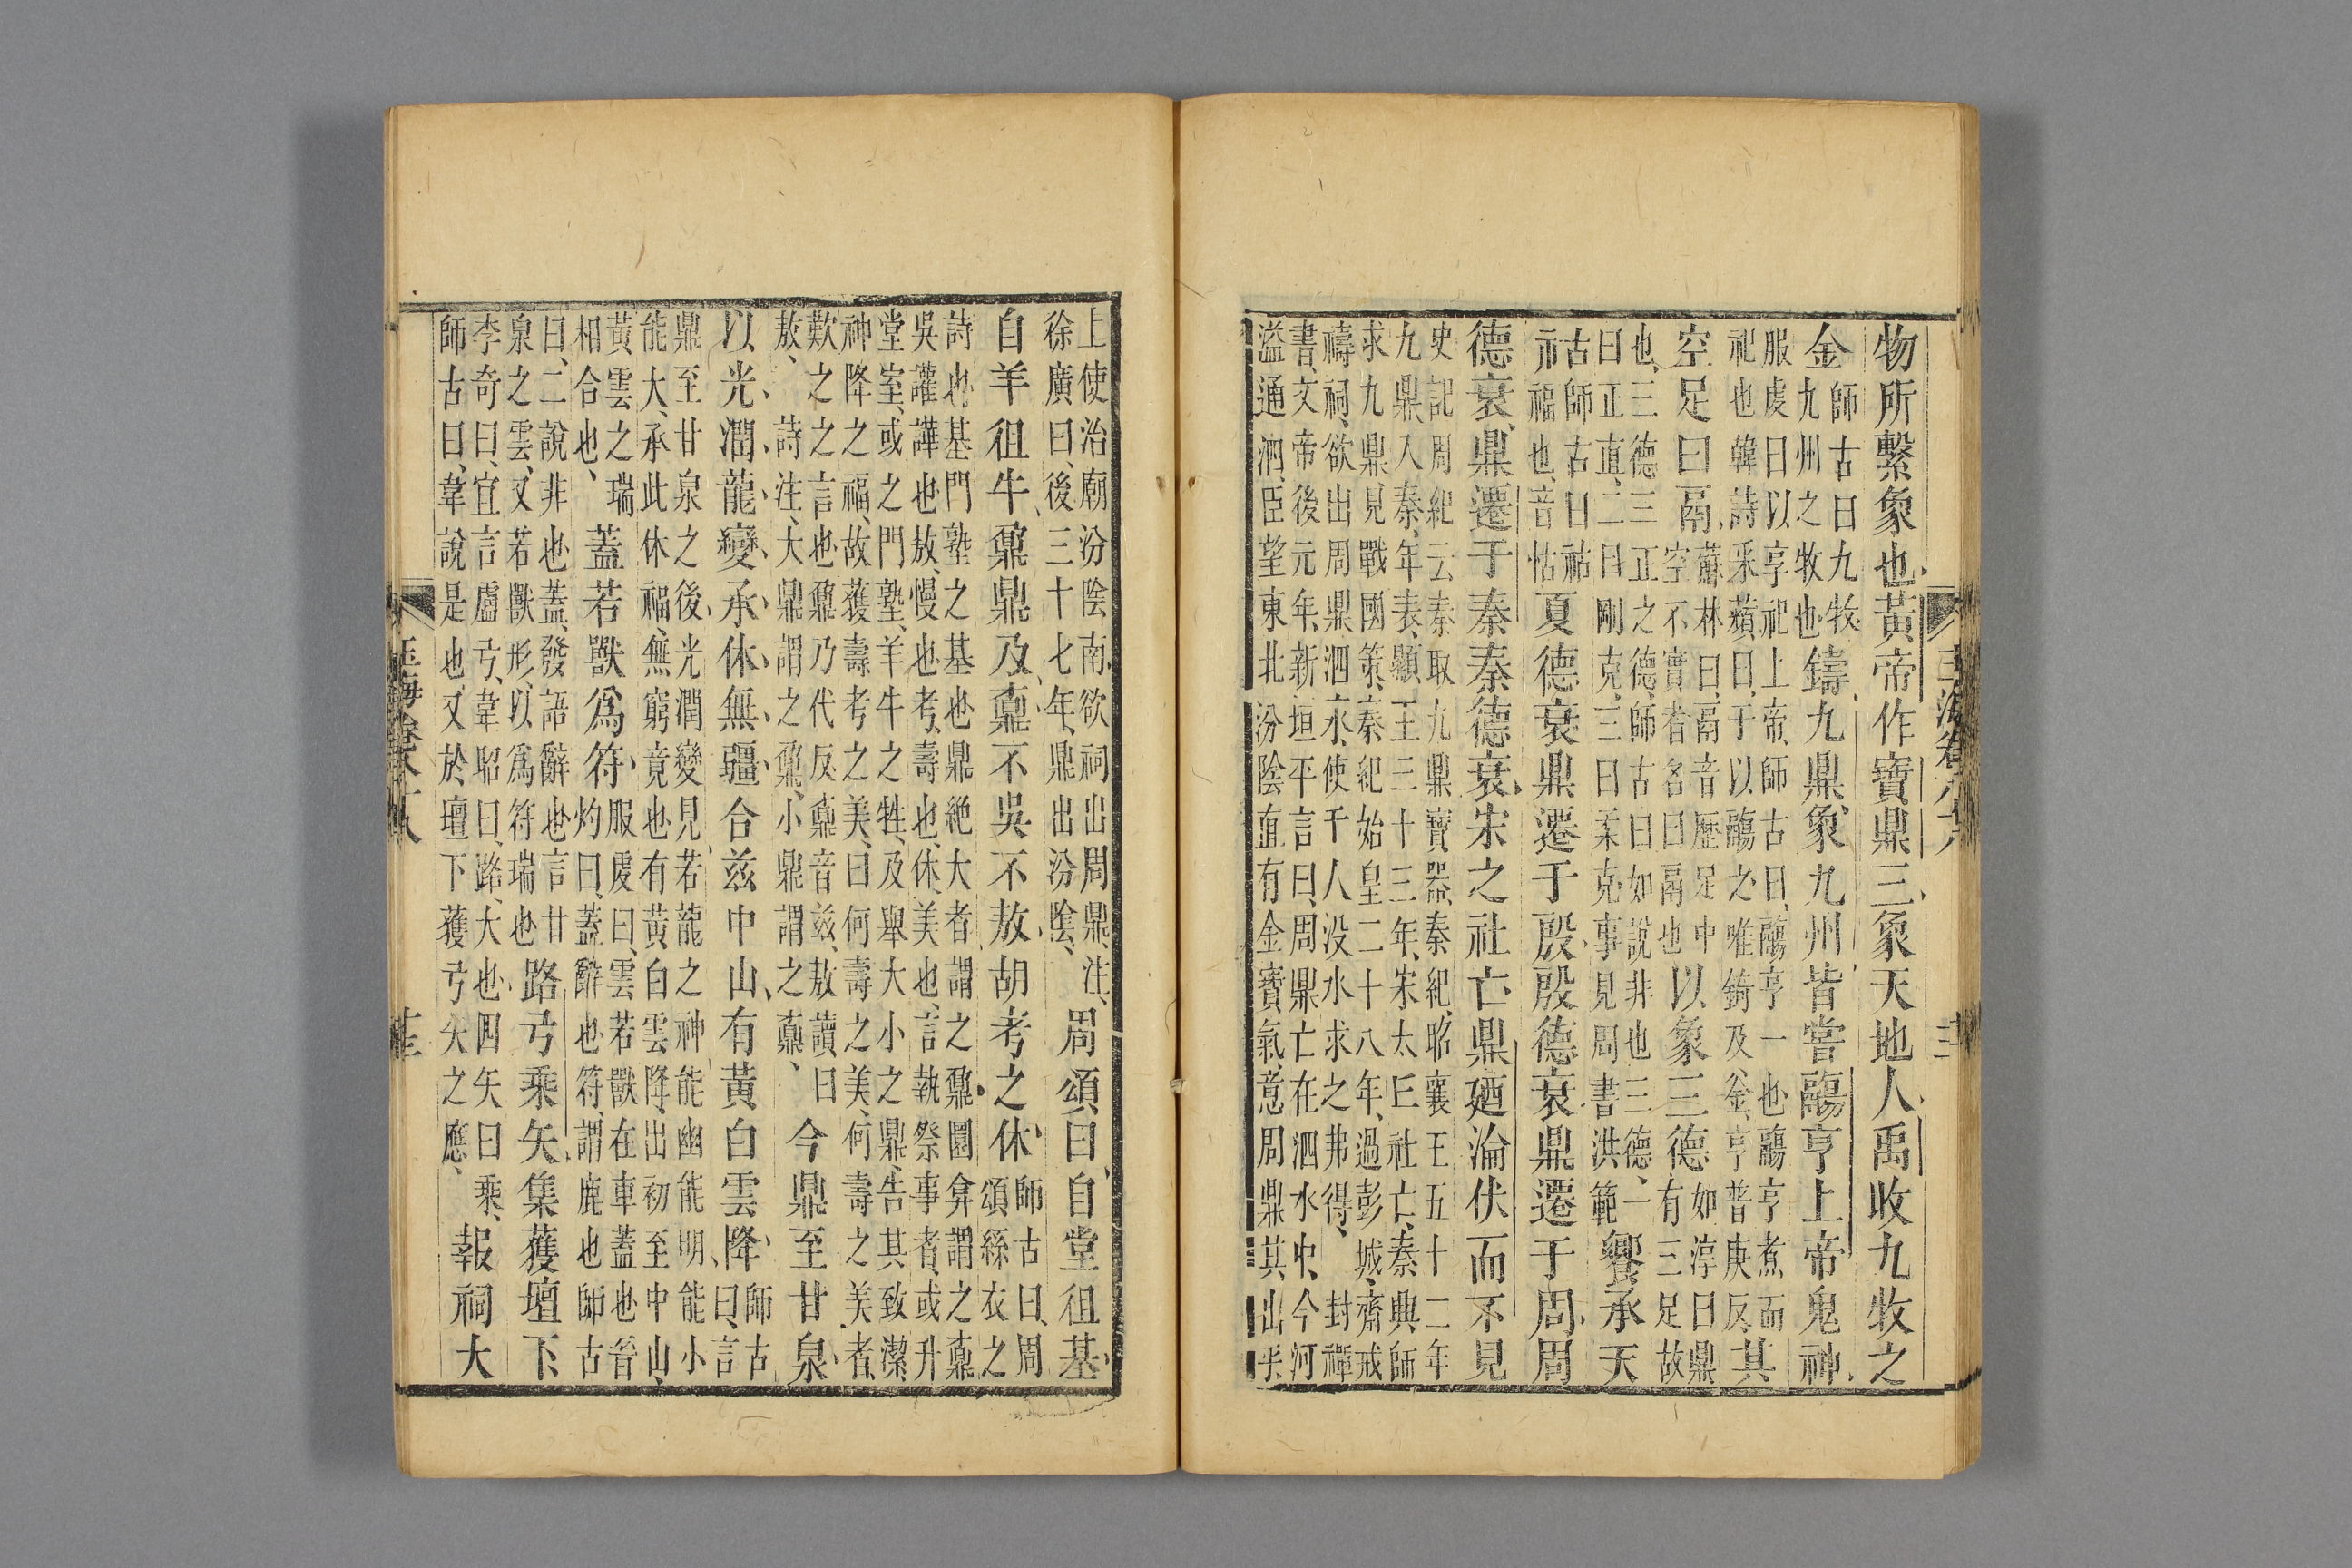 物所繫象也黃帝作寶鼎三象天地人禹收九牧之
金師古曰九牧九州之牧也鑄九鼎象九州皆嘗鬺亨上帝鬼神
服虔曰以享祀上帝師古曰鬺亨一也鬺亨煮而
祀也韓詩采蘋曰于以鬺之唯錡及釜亨普庚反其
空足曰鬲蘇林曰鬲音歷足中空不實者名曰鬲也以象三德如淳曰鼎有三足故
也三德三正之德師古曰如說非也三德一
曰正直二曰剛克三曰柔克事見周書洪範饗承天
祜師古曰祜福也音怙夏德衰鼎遷于殷殷德衰鼎遷于周周
德衰鼎遷于秦秦德衰宋之社亡鼎廼淪伏而不見
史記周紀云秦取九鼎寶器秦紀昭襄王五十二年
九鼎入秦年表顯王三十三年宋太丘社亡秦典師
求九鼎見戰國策秦紀始皇二十八年過彭城齋戒
禱祠欲出周鼎泗水使千人没水求之弗得封禪
書文帝後元年新垣平言曰周鼎亡在泗水中今河
溢通泗臣望東北汾陰直有金寶氣意周鼎其出乎
玉海卷八十八
上使治廟汾陰南欲祠出周鼎注
徐廣曰後三十七年鼎出汾陰周頌曰自堂徂基
自羊徂牛鼐鼎及鼒不吳不敖胡考之休師古曰周頌絲衣之
詩也基門塾之基也鼎絕大者謂之鼐圜弇謂之鼒
吳讙譁也敖慢也考壽也休美也言執祭事者或升
堂室或之門塾羊牛之牲及舉大小之鼎告其致潔
神降之福故獲壽考之美曰何壽之美何壽之美者
歎之之言也鼐乃代反鼒音兹敖讀曰
敖詩注大鼎謂之鼐小鼎謂之鼒今鼎至甘泉
以光潤龍變承休無疆合兹中山有黃白雲降師古曰言
鼎至甘泉之後光潤變見若龍之神能幽能明能小
能大承此休福無窮竟也有黃白雲降出初至中山
黃雲之瑞相合也蓋若獸爲符服虔曰雲若獸在車蓋也晉灼曰蓋辭也符謂鹿也師古
曰二說非也蓋發語辭也言甘
泉之雲又若獸形以爲符瑞也路弓乘矢集獲壇下
李奇曰宜言盧弓韋昭曰路大也四矢曰乘
師古曰韋說是也又於壇下獲弓矢之應報祠大
玉海卷八十八